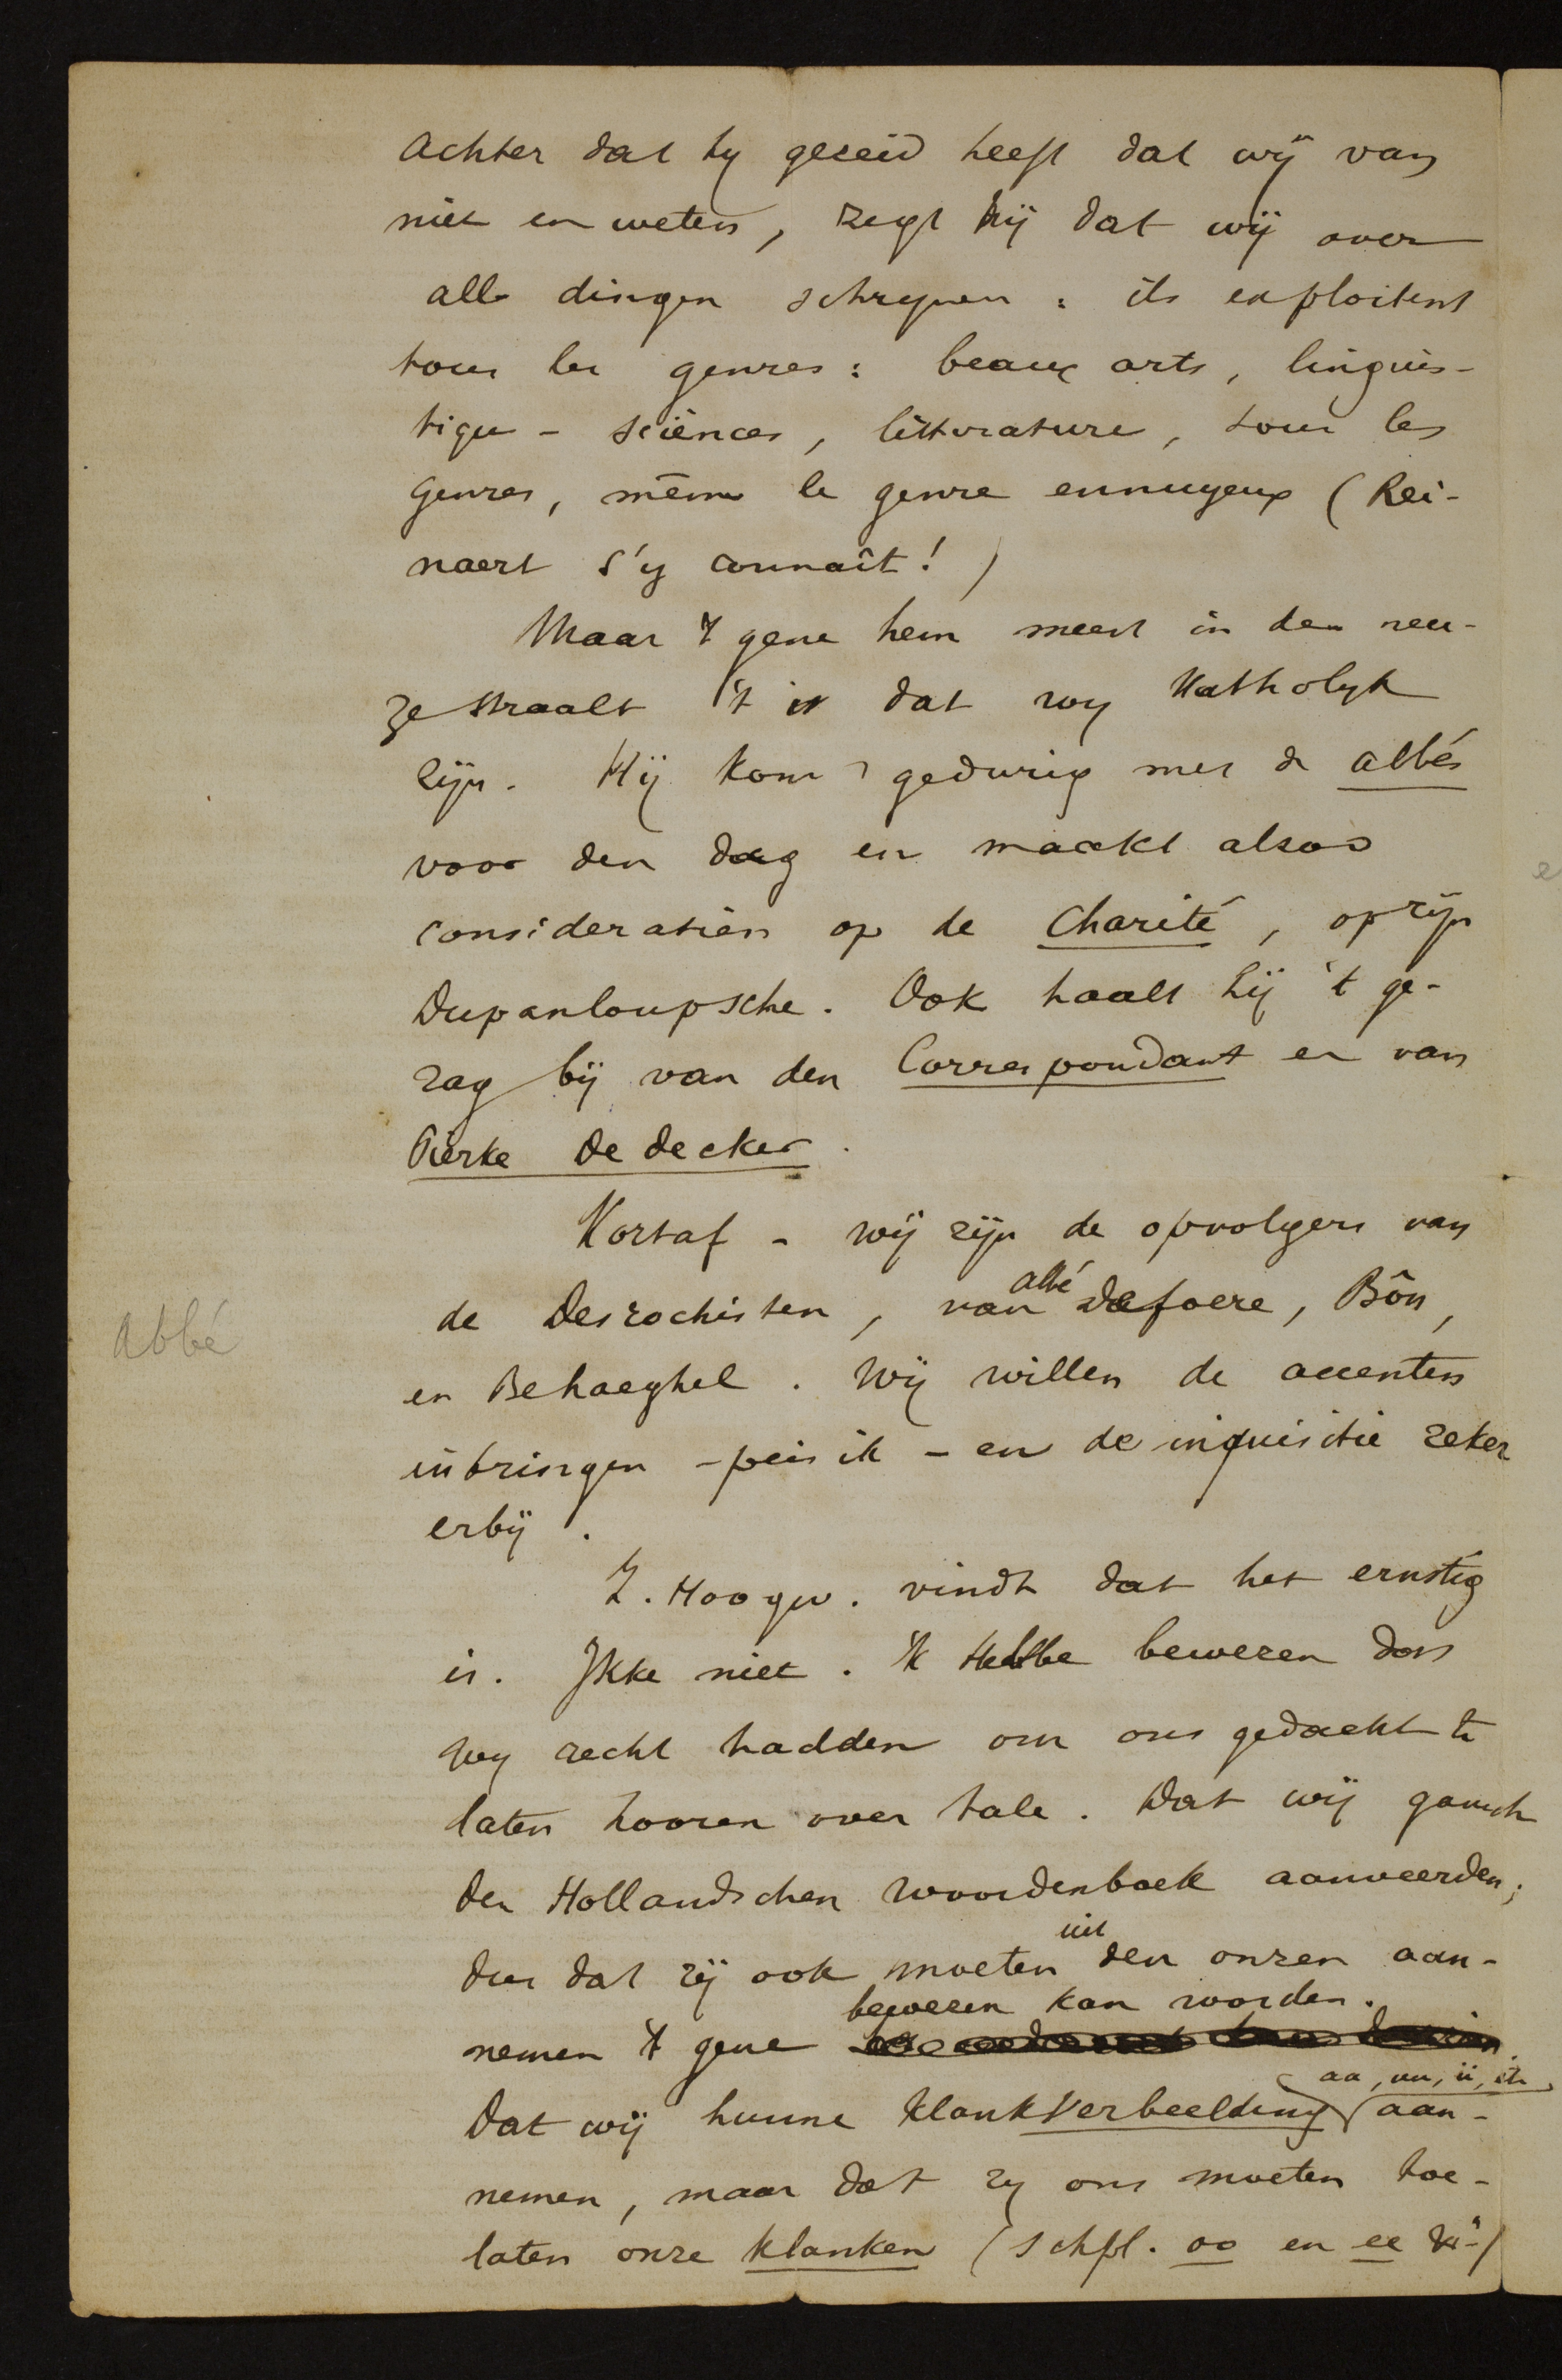 Achter dat hy gezeid heeft dat wij van
niet en weten, zegt hij dat wij over
alle dingen schryven : ils exploitent
tous les genres : beaux arts, linguis-
tique - sciènces, litterature, tous les
genres, même le genre ennuyeux (Rei-
naert s'y connaît! )
Maar 't gene hem meest in den neu-
ze straalt 't is dat wy Katholyk
zijn. Hij komt gedurig met de abbés
voor den dag en maakt alsoo
consideratiën op de Charité, op zijn
Dupanloupsche. Ook haalt hij 't ge-
zag bij van den Correspondant en van
Pierke De decker.
Kortaf - wij zijn de opvolgers van
de Desrochisten, van abbé Defoere, Bôn,
Abbé
en Behaeghel. Wij willen de accenten
inbringen - peis ik - en de inquisitie zeker
erbij.
Z. Hoogw. vindt dat het ernstig
is. Ikke niet. 'k Hebbe bewezen dat
wy recht hadden om ons gedacht te
laten hooren over tale. Dat wij gansch
den Hollandschen woordenboek aanveerden;
dus dat zij ook moeten uit den onzen aan-
nemen 't gene bewezen kan worden.
Dat wij hunne klankverbeelding (aa, uu, ii, etc) aan-
nemen, maar dat zy ons moeten toe-
laten onze klanken (schpl. oo en ee